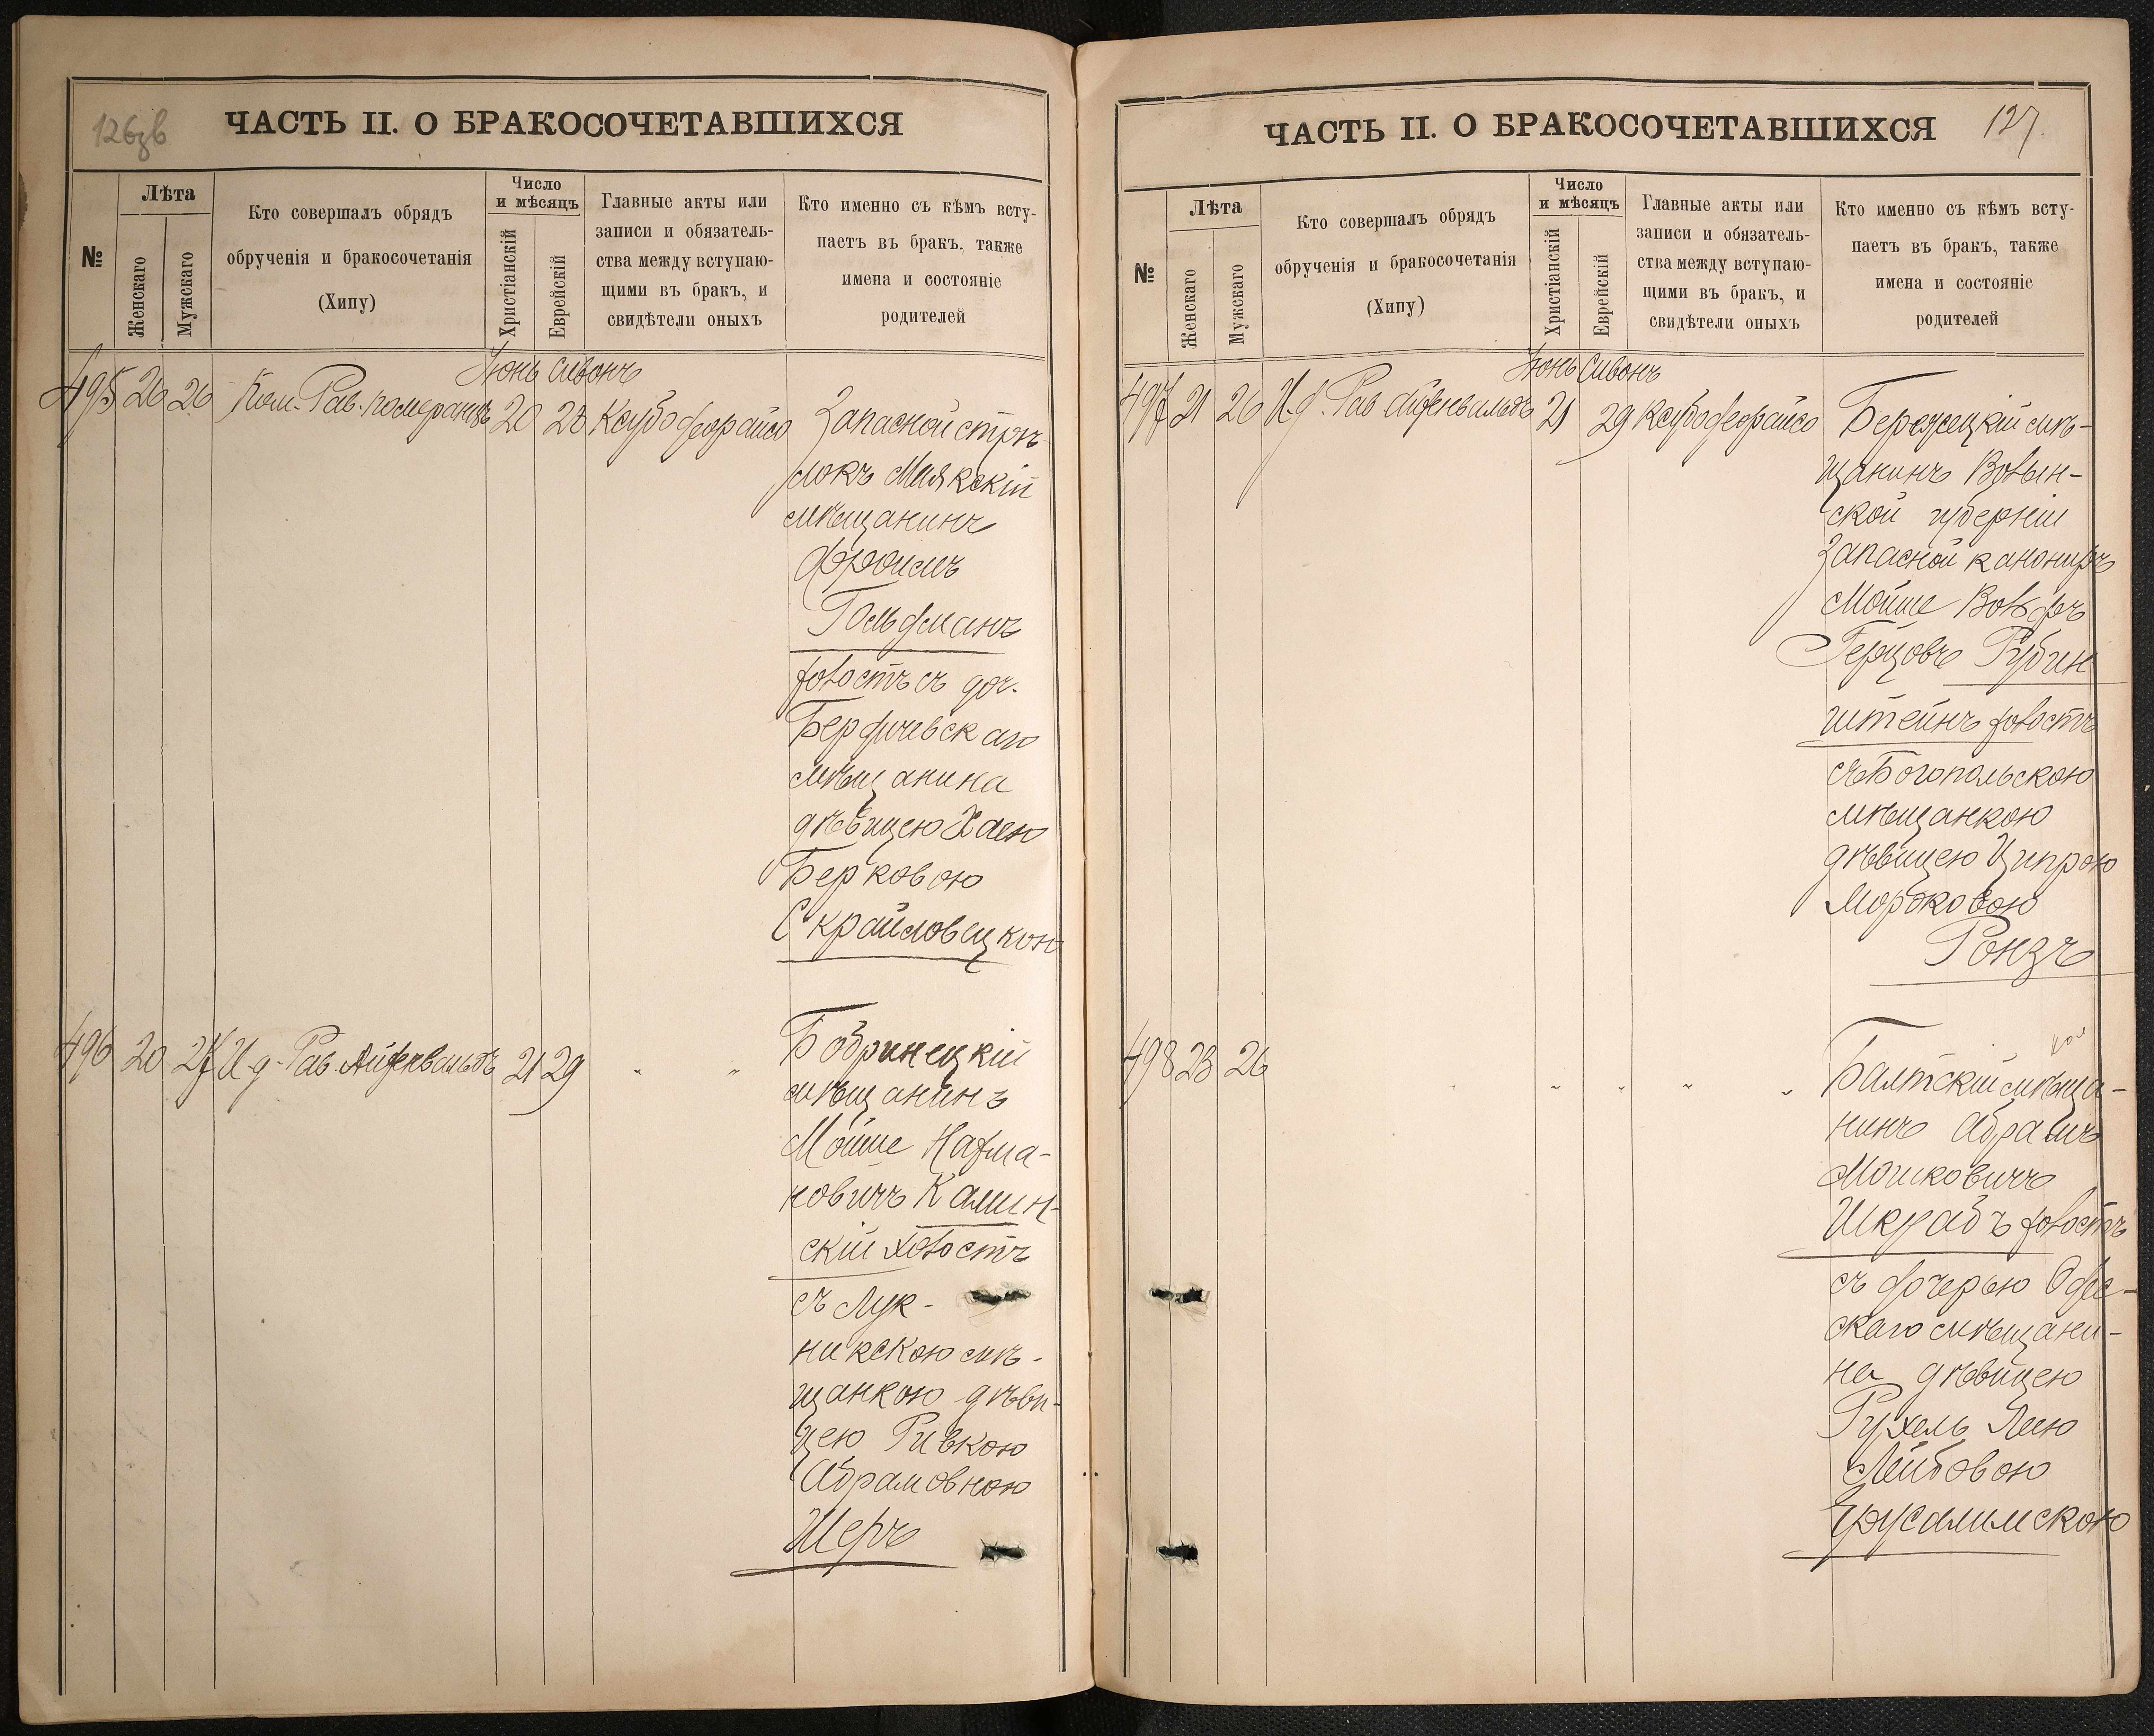 126зв
ЧАСТЬ II. О БРАКОСОЧЕТАВШИХСЯ
№
Лѣта
Женскаго
Мужскаго
Кто совершалъ обрядъ
обрученія и бракосочетанія
(Хипу)
Число
и мѣсяцъ
Христіанскій
Еврейскій
Главные акты или
записи и обязатель-
ства между вступаю-
щими въ бракъ, и
свидѣтели оныхъ
Кто именно съ кѣмъ всту-
паетъ въ бракъ, также
имена и состояніе
родителей
Іюнь Сивонъ
495 20 26 Пом. Рав. Померанцъ 20 28
Запасной стрѣ-
локъ Маякскій
мѣщанинъ
Фроимъ
Гольдманъ
холостъ съ доч.
Бердичевскаго
мѣщанина
дѣвицею Хаею
Берковою
Скрайловецкою
496 20 27 И. д. Рав. Айзенвальдъ 21 29 " "
Бобринецкій
мѣщанинъ
Мойше Нахма-
новичъ Камин-
скій холостъ
съ Лук-
никскою мѣ-
щанкою дѣви-
цею Ривкою
Абрамовною
Шеръ
ЧАСТЬ II. О БРАКОСОЧЕТАВШИХСЯ
127.
№
Лѣта
Женскаго
Мужскаго
Кто совершалъ обрядъ
обрученія и бракосочетанія
(Хипу)
Число
и мѣсяцъ
Христіанскій
Еврейскій
Главные акты или
записи и обязатель-
ства между вступаю-
щими въ бракъ, и
свидѣтели оныхъ
Кто именно съ кѣмъ всту-
паетъ въ бракъ, также
имена и состояніе
родителей
Іюнь Сивонъ
497 21 26 И. д. Рав Айзенвальдъ 21 29
Бережецкій мѣ-
щанинъ Волын-
ской губерніи
Запасной канониръ
Мойше Вольфъ
Герцовъ Рубин
штейнъ холостъ
съ Богопольскою
мѣщанкою
дѣвицею Ципрою
Мордковою
Ронзъ
498 23 26 " " " " "
Балтскій мѣща-
нинъ Абрамъ
Мошковичъ
Шкрабъ холостъ
съ дочерью Одес-
скаго мѣщани-
на дѣвицею
Рухель Леею
Лейбовою
Ерусалимскою